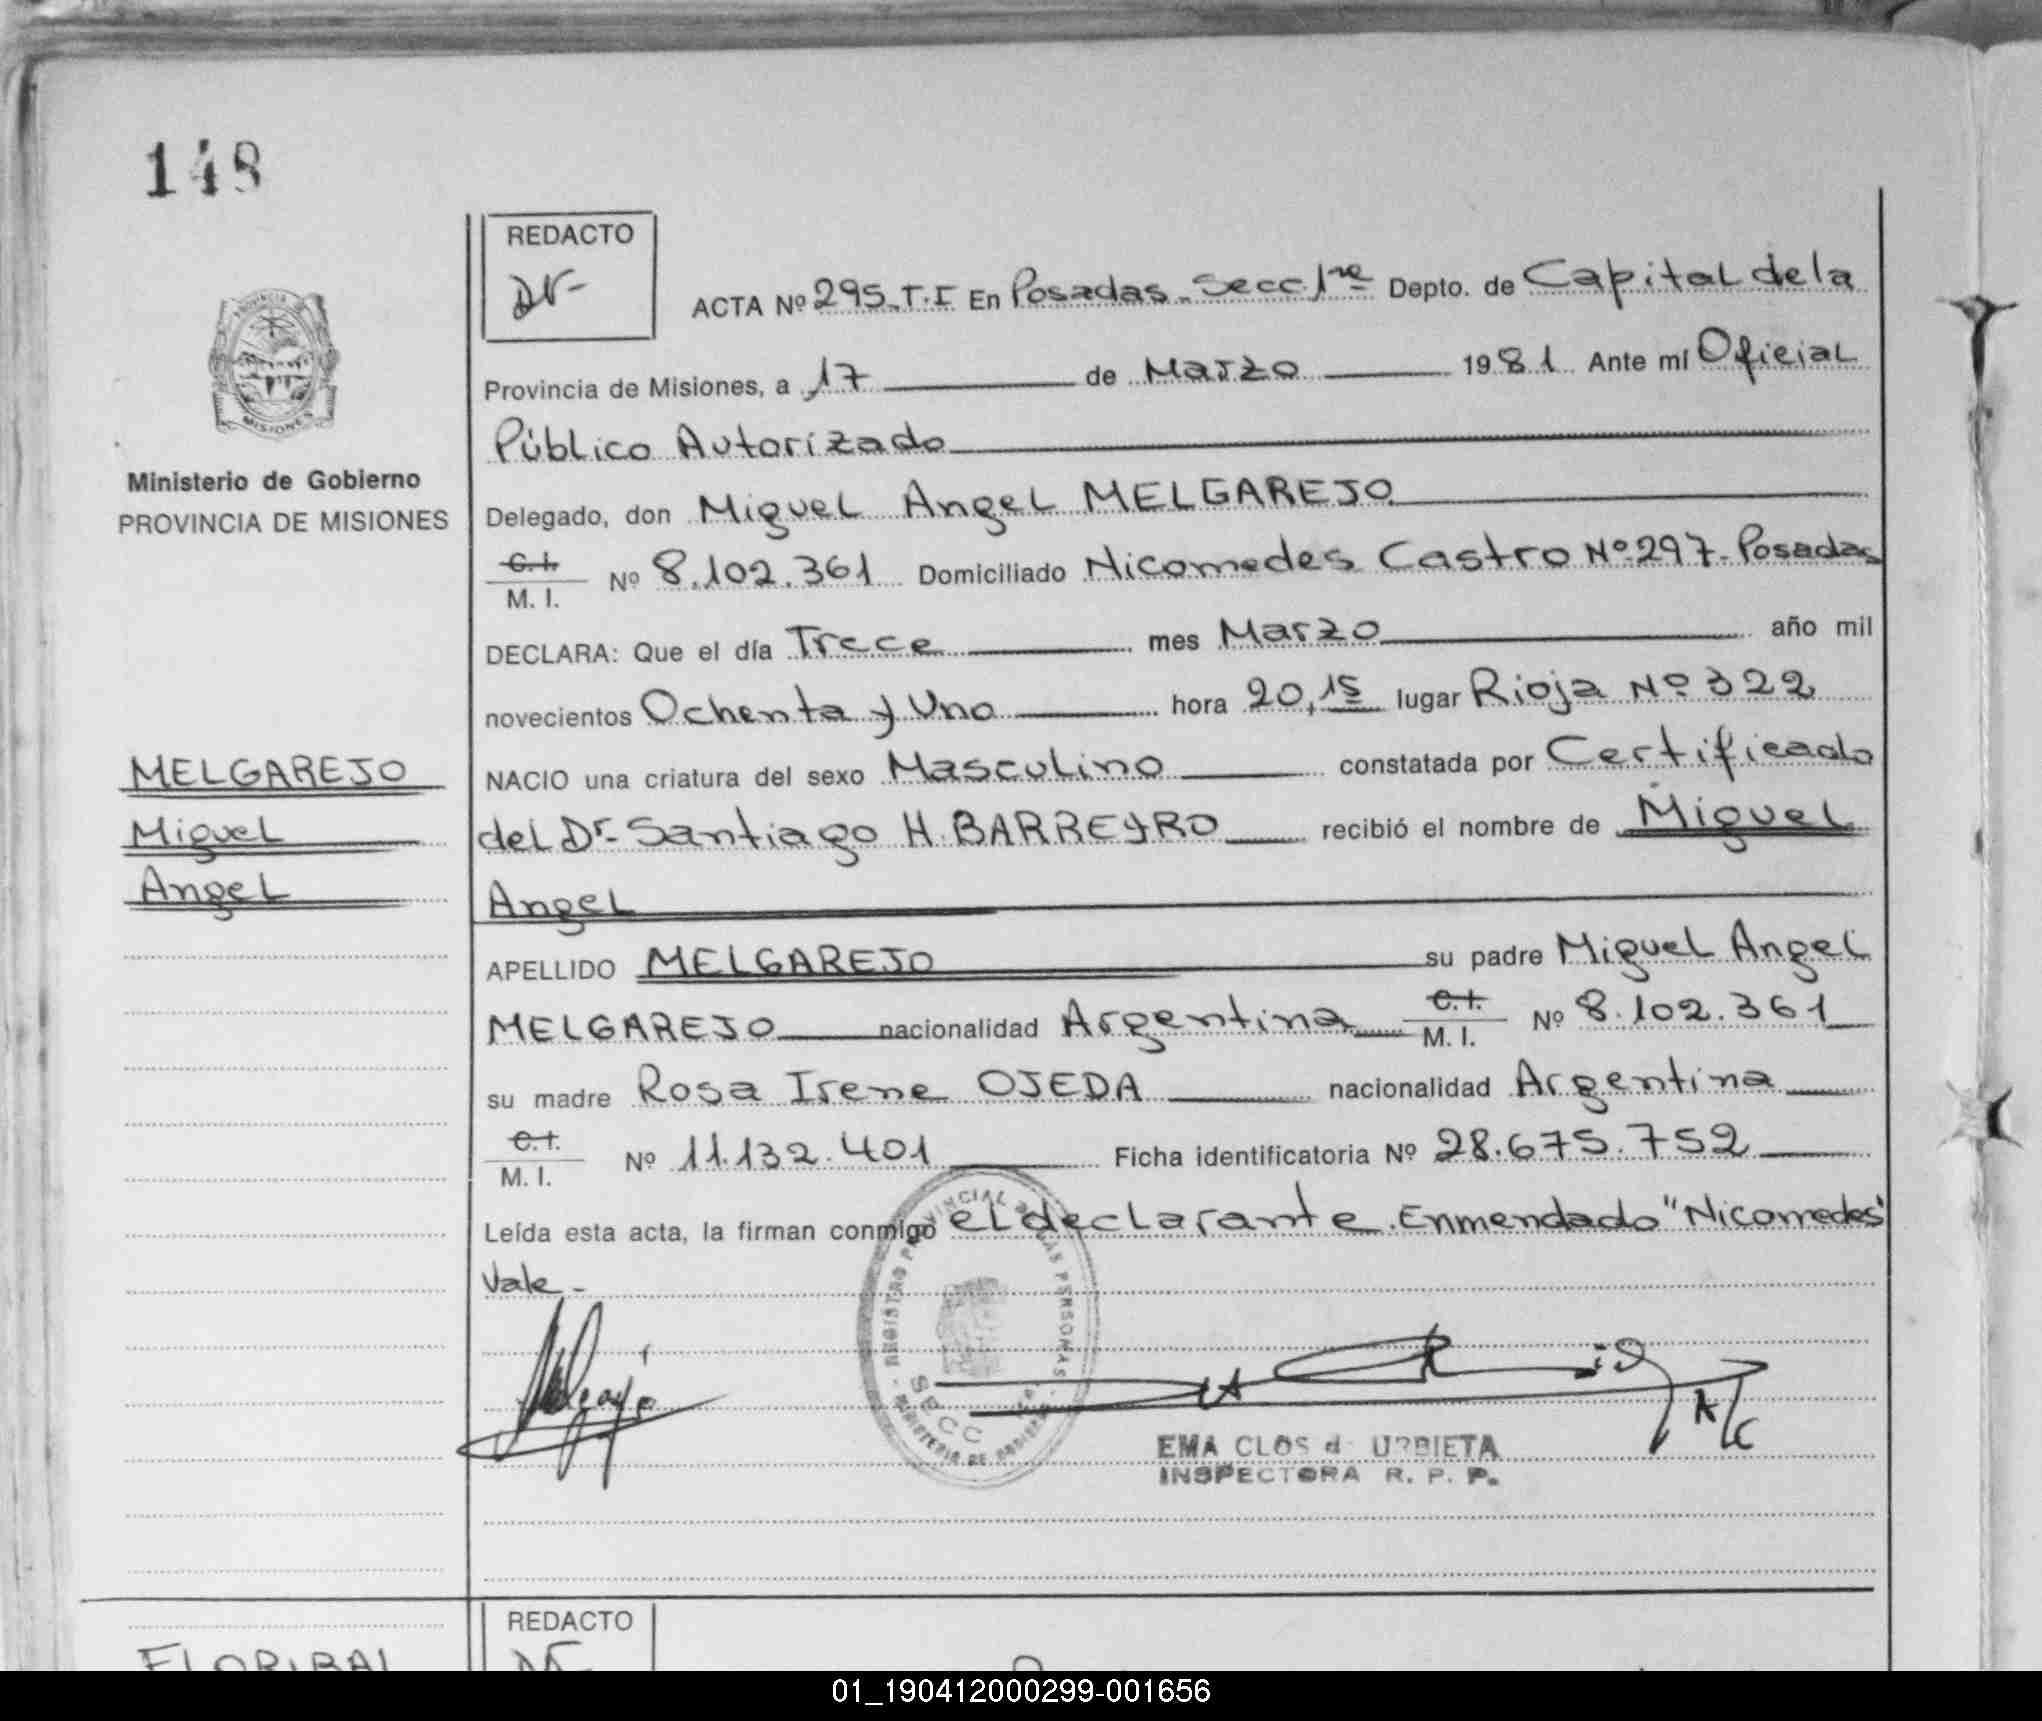 148
REDACTO
ACTA Nº 295.T.I En Posadas. Secc. 1ra Depto. de Capital de la
Provincia de Misiones, a 17 de Marzo 1981 Ante mí Oficial
Público Autorizado
Ministerio de Gobierno
PROVINCIA DE MISIONES
Delegado, don Miguel Angel MELGAREJO
C.I. M. I. Nº 8.102.361 Domiciliado Nicomedes Castro Nº 297. Posadas
DECLARA: Que el día Trece mes Marzo año mil
novecientos Ochenta y Uno hora 20,15 lugar Rioja Nº 322
MELGAREJO
Miguel
Angel
NACIO una criatura del sexo Masculino constatada por Certificado
del Dr. Santiago H. BARREYRO recibió el nombre de Miguel
Angel
APELLIDO MELGAREJO su padre Miguel Angel
MELGAREJO nacionalidad Argentina C.I. M. I. Nº 8.102.361
su madre Rosa Irene OJEDA nacionalidad Argentina
C.I. M. I. Nº 11.132.401 Ficha identificatoria Nº 28.675.752
Leída esta acta, la firman conmigo el declarante. Enmendado "Nicomedes"
Vale-
EMA CLOS de URBIETA
INSPECTORA R. P. P.
REDACTO
01_190412000299-001656